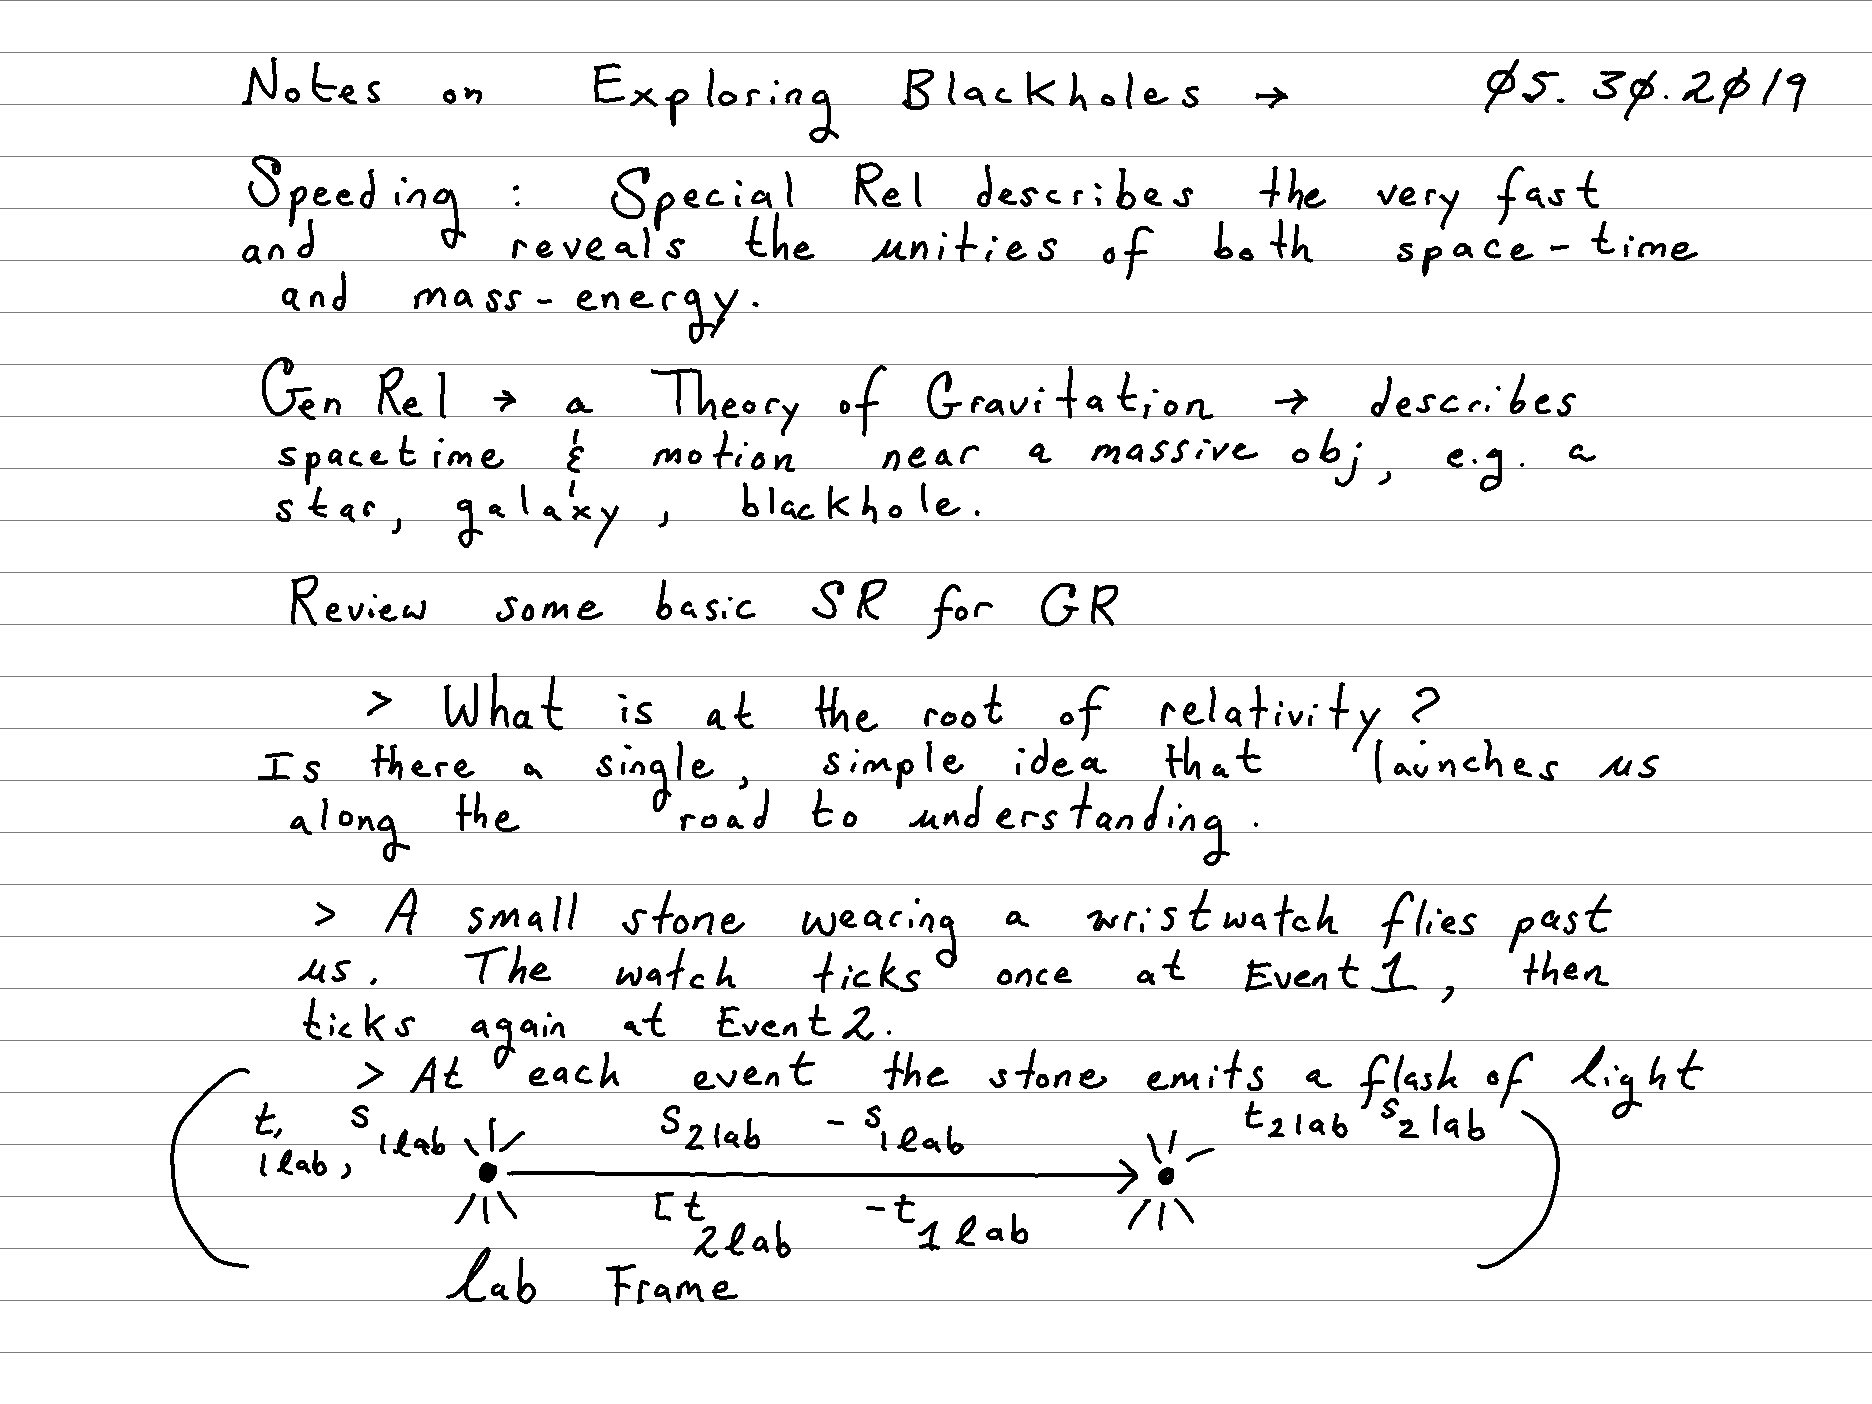 Notes on Exploring Blackholes → Ø5. 3Ø. 2Ø19
Speeding : Special Rel describes the very fast
and reveals the unities of both space-time
and mass-energy.
Gen Rel → a Theory of Gravitation → describes
spacetime & motion near a massive obj, e.g. a
star, galaxy, blackhole.
Review some basic SR for GR
> What is at the root of relativity?
Is there a single, simple idea that launches us
along the road to understanding.
> A small stone wearing a wristwatch flies past
us. The watch ticks once at Event 1, then
ticks again at Event 2.
> At each event the stone emits a flash of light
t, 1lab, s 1lab s 2lab - s 1lab t 2lab s 2lab
[t 2lab - t 1lab
lab Frame